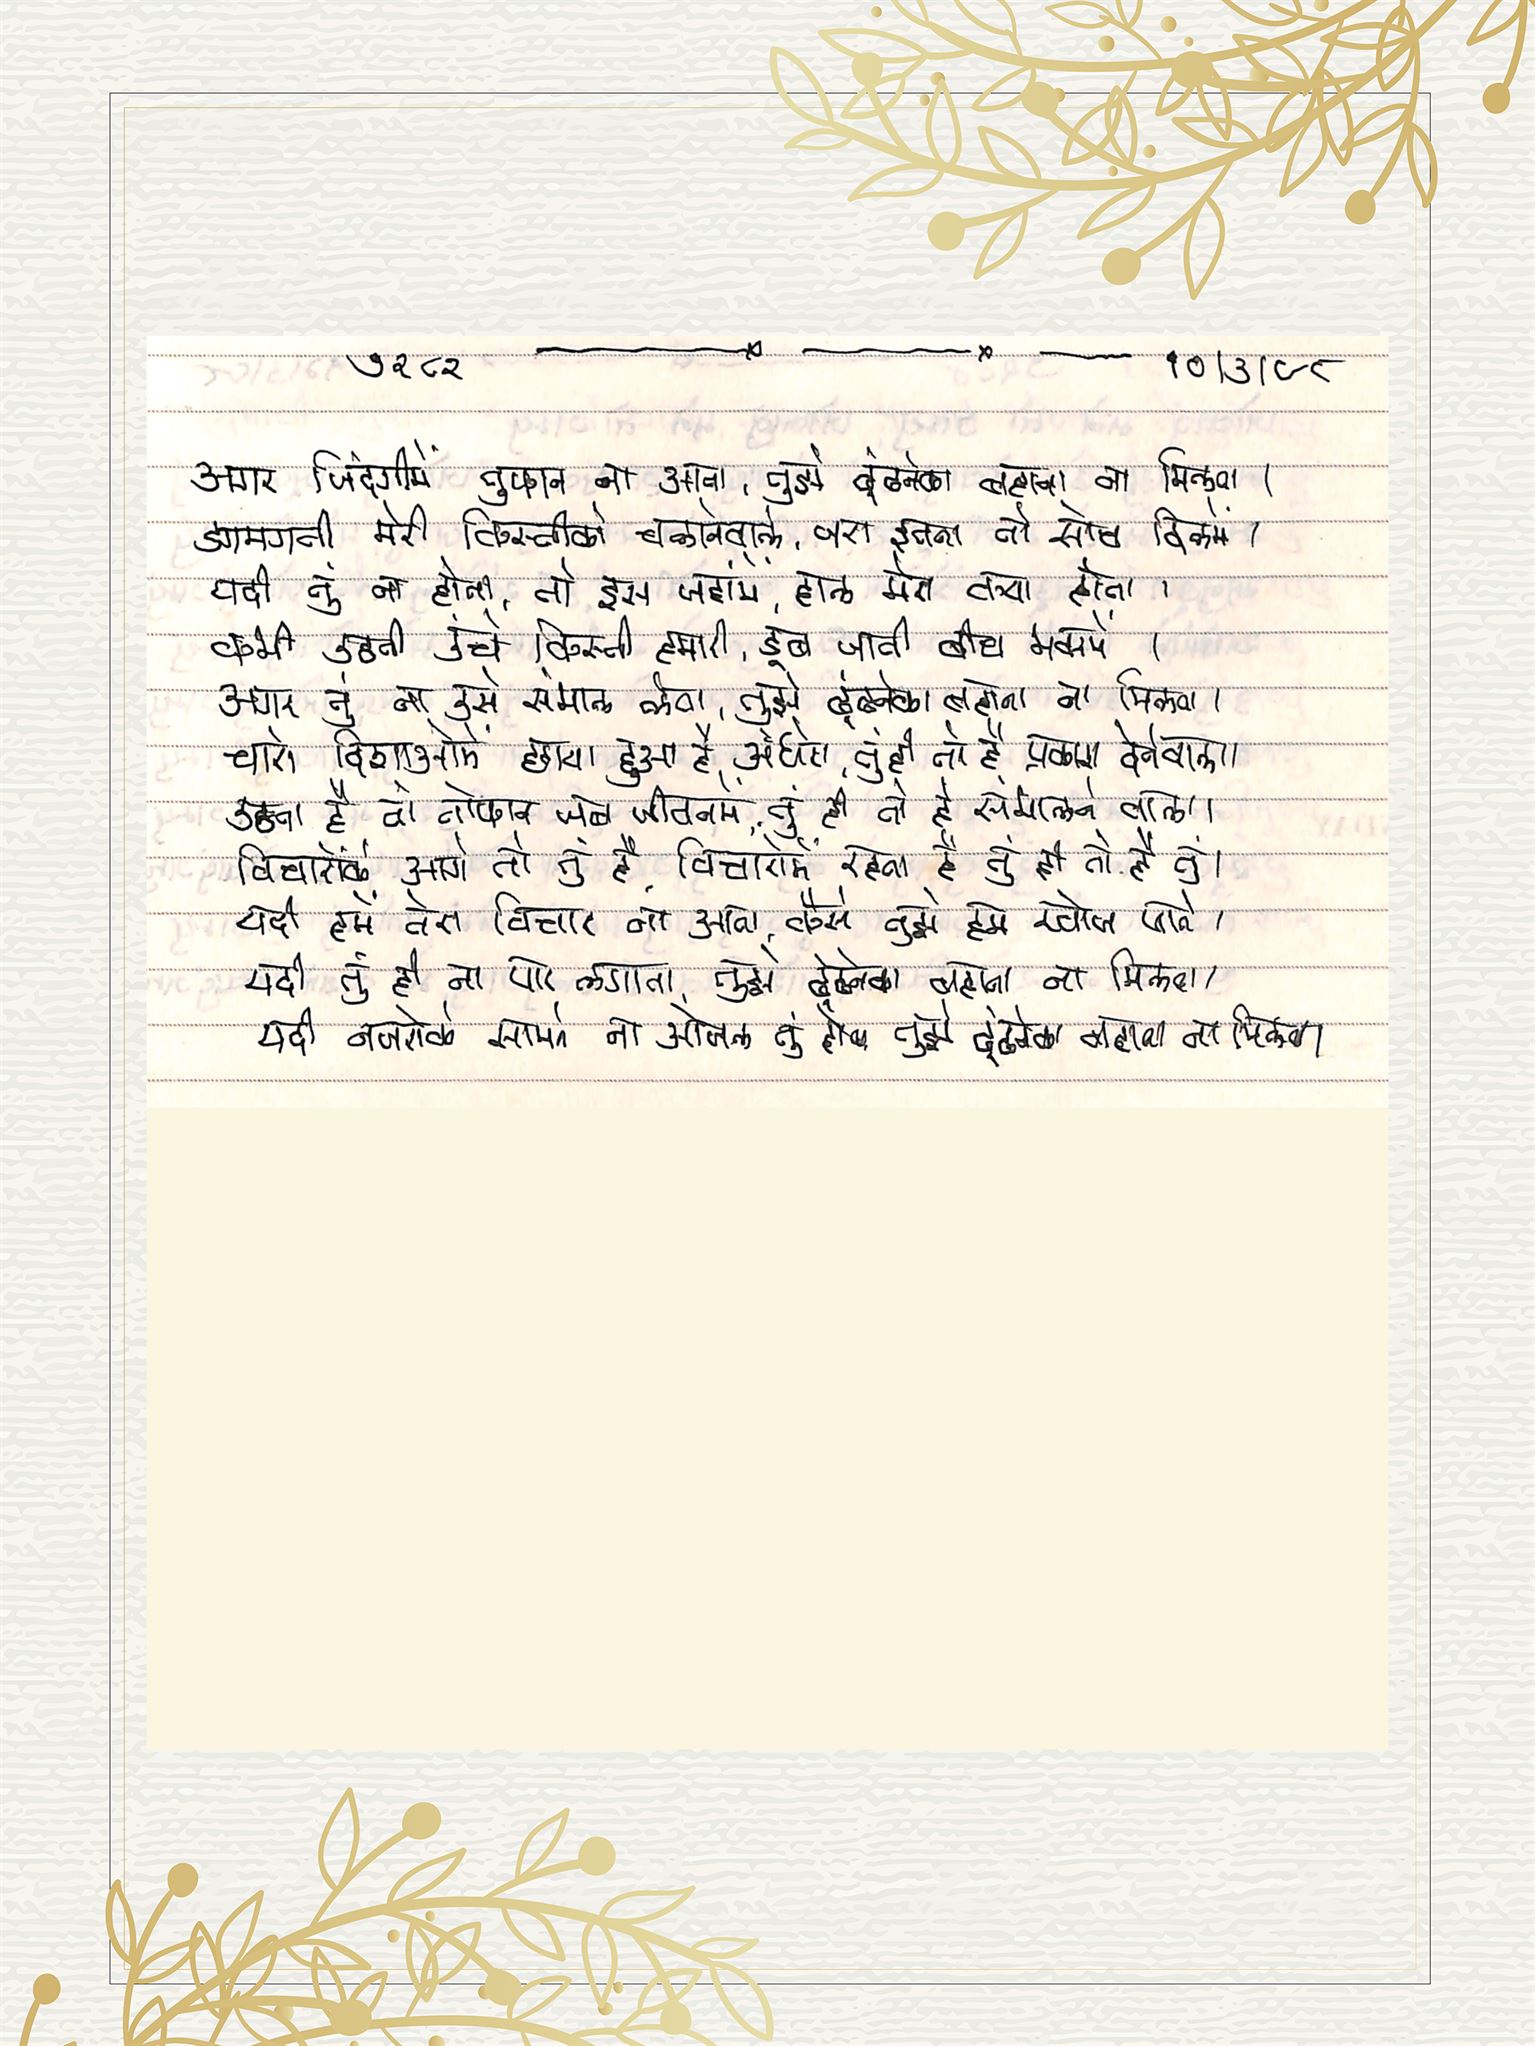 ७२८२ १०/३/९८
अगर जिंदगीमें तुफान ना आता, तुझे ढूंढनेका बहाना ना मिलता ।
डगमगती मेरी किस्तीको चलानेवाले, जरा इतना तो सोच दिलमें ।
यदी तुं ना होता, तो इस जहांमें, हाल मेरा क्या होता ।
कभी उठती उंचे किस्ती हमारी, डूब जाती बीच में ।
अगर तुं ना उसे संभाल लेता, तुझे ढूंढनेका बहाना ना मिलता ।
चारों दिशाओमें छाया हुआ है अंधेरा, तुंही तो है प्रकाश देनेवाला ।
उठता है तो तोफान जब जीवनमें, तुं ही तो है संभालने वाला ।
विचारोंके आगे तो तुं है, विचारोंमें रहता है तुं ही तो है तुं ।
यदी हमें तेरा विचार ना आता, कैसे तुझे हम खोज पाते ।
यदी तुं ही ना पार लगाता, तुझे ढूंढनेका बहाना ना मिलता ।
यदी नजरोके सामने ना ओजल तुं होता तुझे ढूंढनेका बहाना ना मिलता ।